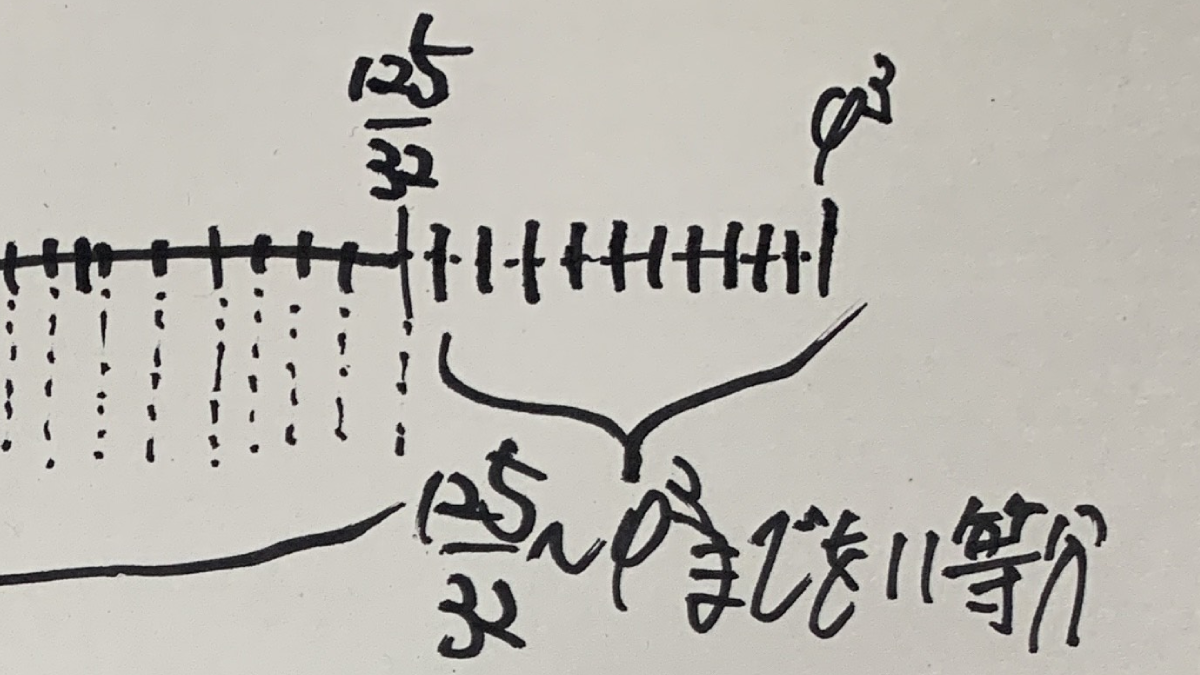 125/32
φ³
125/32~φ³までを11等分